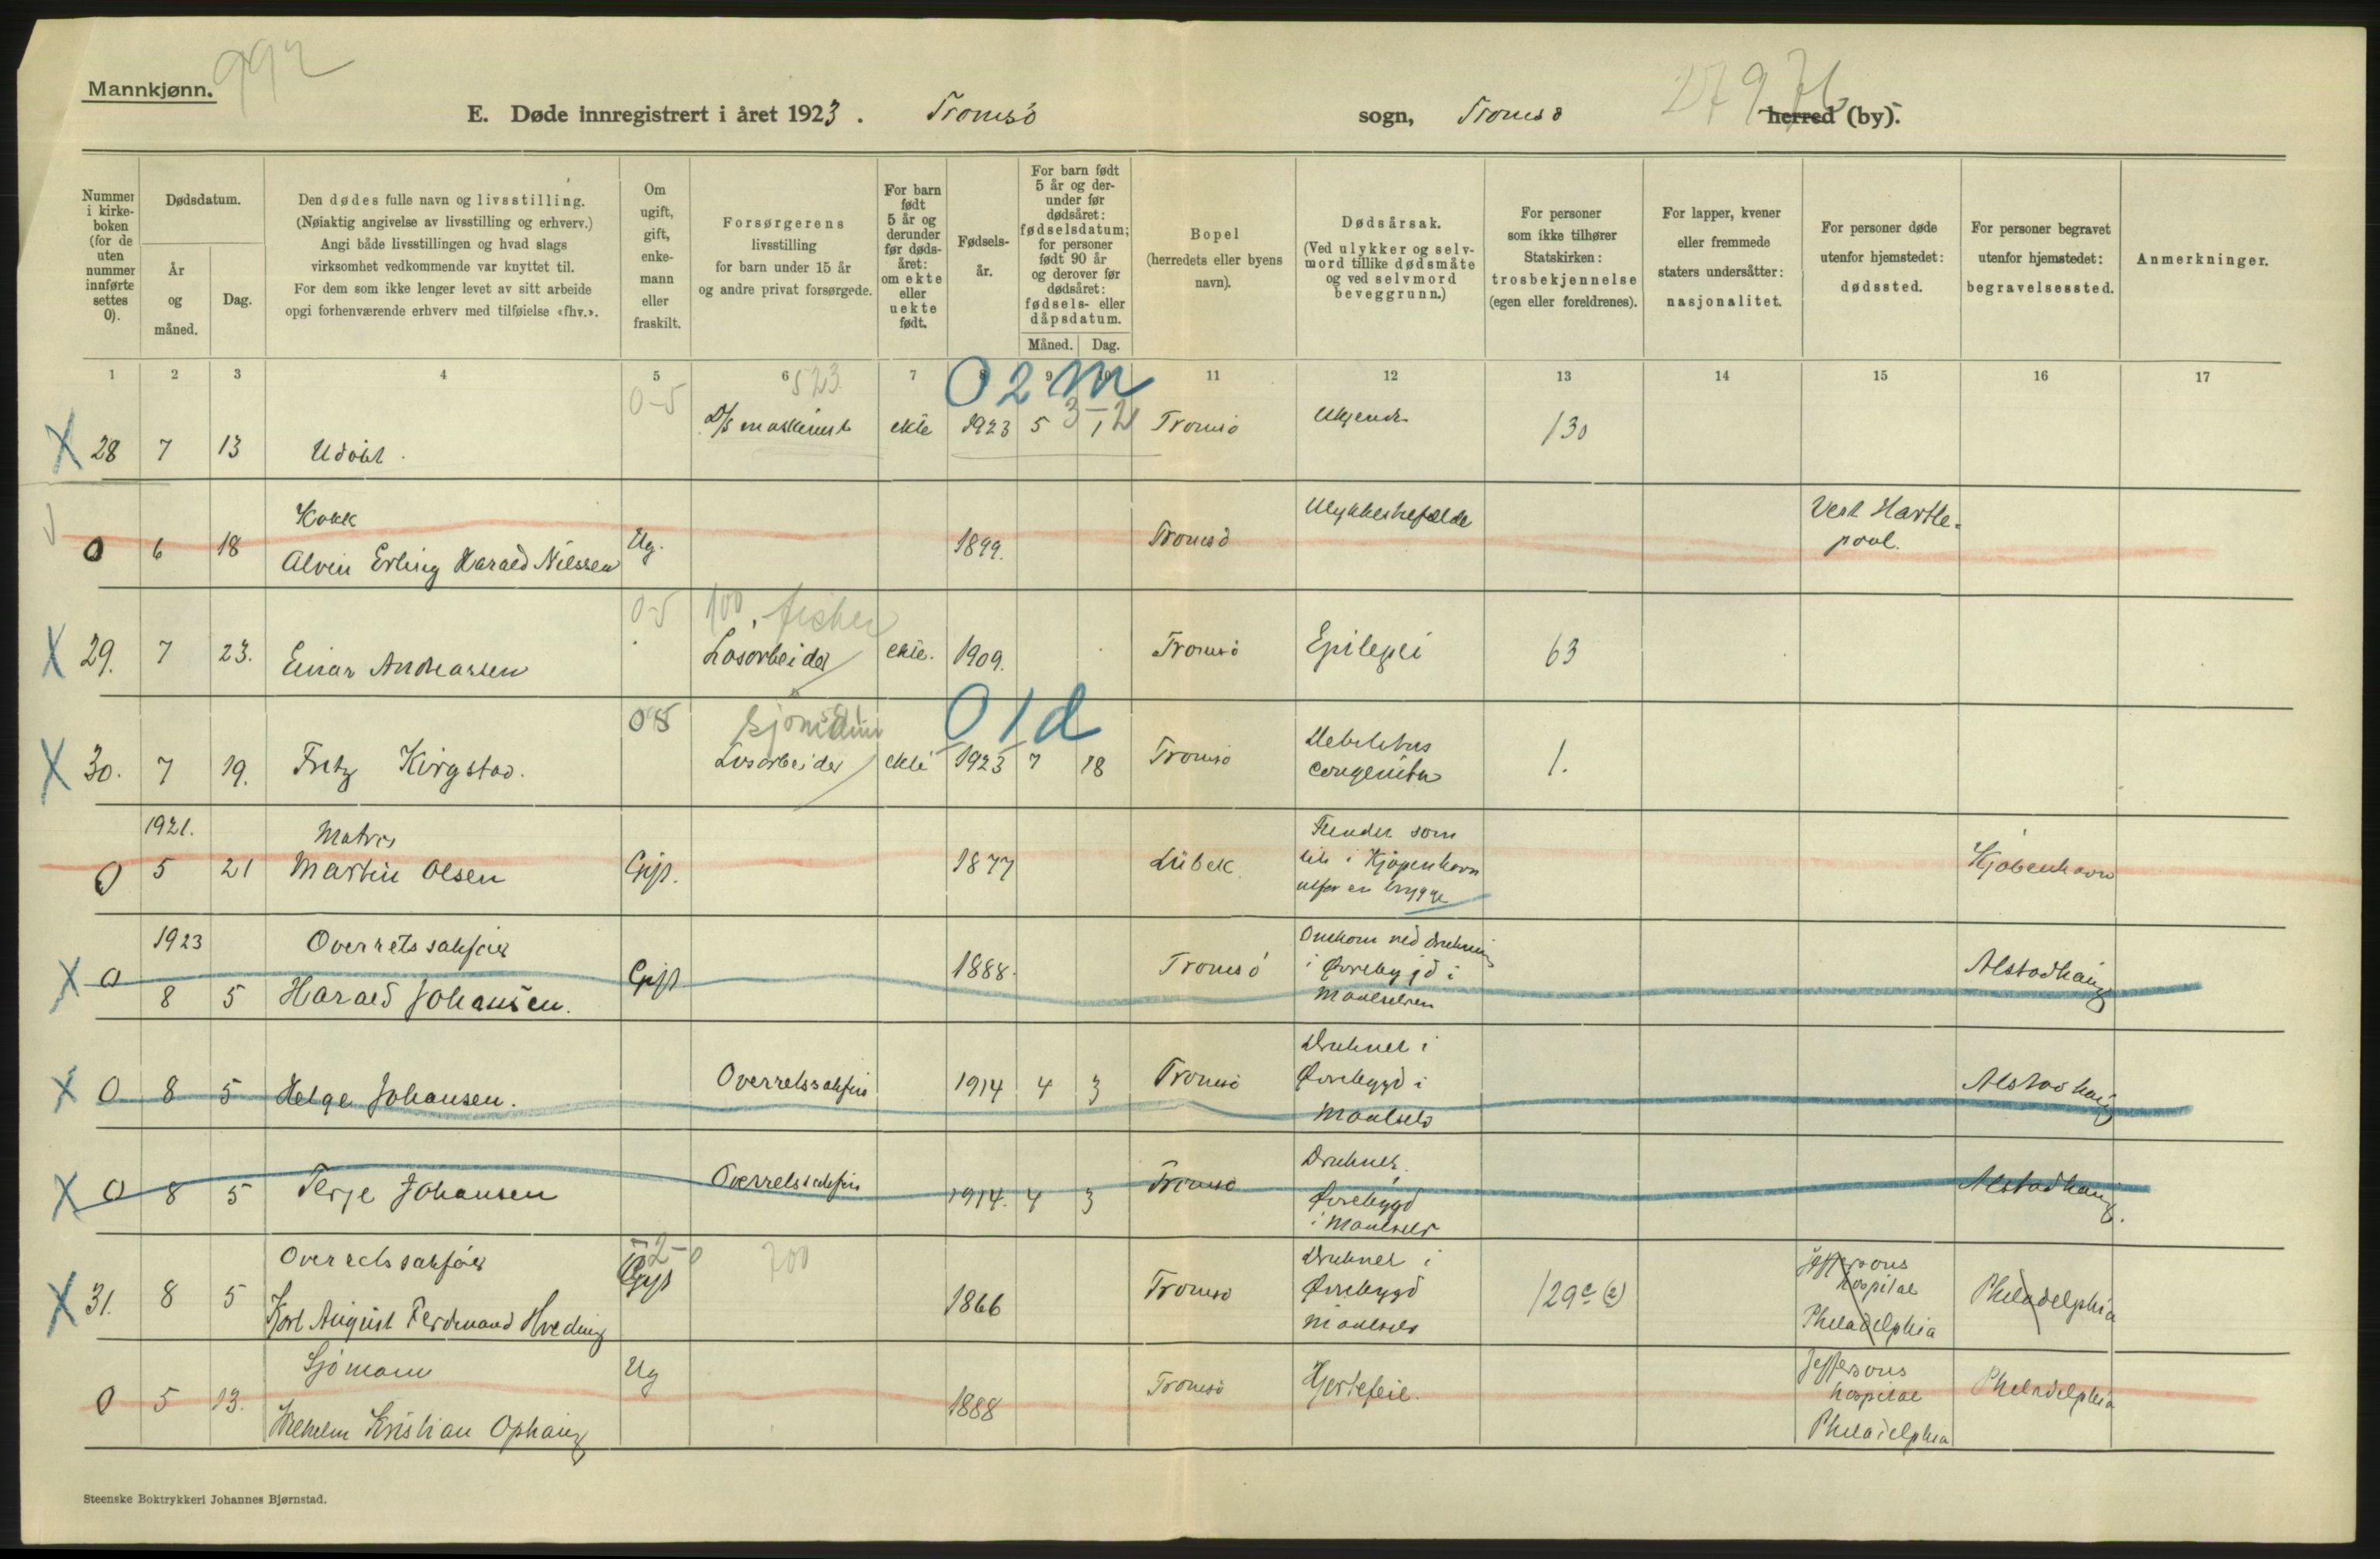 Mannkjønn. 992
E. Døde innregistrert i året 1923. Tromsö sogn, Tromsö herred (by).
27976
Nummer i kirkeboken (for de uten nummer innførte settes 0).
Dødsdatum.
År og måned.
Dag.
Den dødes fulle navn og livsstilling.
(Nøiaktig angivelse av livsstilling og erhverv.)
Angi både livsstillingen og hvad slags
virksomhet vedkommende var knyttet til.
For dem som ikke lenger levet av sitt arbeide
opgi forhenværende erhverv med tilføielse «fhv.».
Om ugift, gift, enkemann eller fraskilt.
Forsørgerens
livsstilling
for barn under 15 år
og andre privat forsørgede.
For barn født 5 år og derunder før dødsåret: om ekte eller uekte født.
Fødselsår.
For barn født 5 år og derunder før dødsåret: fødselsdatum; for personer født 90 år og derover før dødsåret: fødsels- eller dåpsdatum.
Måned. Dag.
Bopel
(herredets eller byens
navn).
Dødsårsak.
(Ved ulykker og selvmord tillike dødsmåte og ved selvmord beveggrunn.)
For personer
som ikke tilhører
Statskirken:
trosbekjennelse
(egen eller foreldrenes).
For lapper, kvener
eller fremmede
staters undersåtter:
nasjonalitet.
For personer døde
utenfor hjemstedet:
dødssted.
For personer begravet
utenfor hjemstedet:
begravelsessted.
Anmerkninger.
1 2 3 4 5 6 7 8 9 10 11 12 13 14 15 16 17
0-5 523 02m 3-2
X 28 7 13 Udöbt. D/s maskinist ekte 1923 5 1 Tromsö Ukjendt 130
0 6 18 Kokk
Alvin Erling Harald Nilssen Ug. 1899. Tromsö Ulykkestilfælde Vest Hartlepool.
0-5 100, fisker
X 29. 7 23. Einar Andreassen Lösarbeider ekte. 1909. Tromsö Epilepsi 63
05 01d
X 30. 7 19. Fritz Kirgstad. Lösarbeider ekte 1923 7 18 Tromsö Debilitas
congenita 1.
1921.
0 5 21 Matros
Martin Olsen Gift. 1877 Lübek. Funder som
lik i Kjøpenhavn
utfor en brygge Kjöbenhavn
1923
X 0 8 5 Overretssakförer
Harald Johansen. Gift 1888. Tromsö Omkom ved drukning
i Øvrebygd i
Maalselven Alstadhaug
X 0 8 5 Helge Johansen. Overretssakförer 1914 4 3 Tromsö Druknet i
Øvrebygd i
Maalselv Alstadhaug
X 0 8 5 Terje Johansen Overretssakförer 1914. 4 3 Tromsö Druknet.
Øvrebygd
i Maalselv Alstadhaug.
2-0 700
X 31. 8 5 Overretssakförer
Karl August Ferdinand Hveding Gift 1866 Tromsö Druknet i
Øvrebygd
Maalselv 129c (2) Jeffersons
hospital
Philadelphia Philadelphia
0 5 13. Sjömann
Wilhelm Kristian Ophaug Ug 1888 Tromsö Hjertefeil. Jeffersons
hospital
Philadelphia Philadelphia
Steenske Boktrykkeri Johannes Bjørnstad.